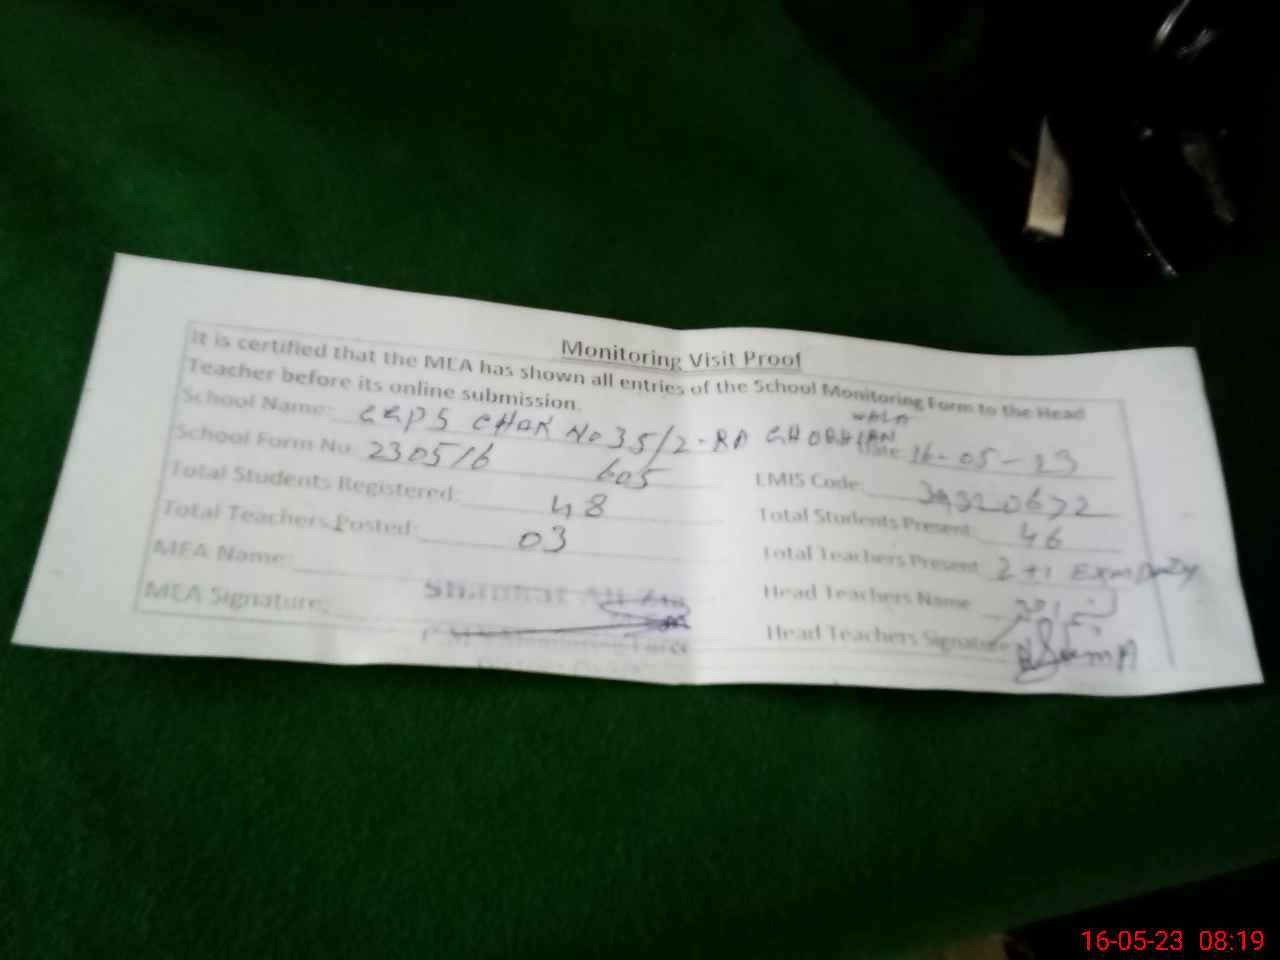 Monitoring Visit Proof
It is certified that the MEA has shown all entries of the School Monitoring Form to the Head
Teacher before its online submission.
School Name: GGPS CHAK No 35/2-RA GHOBHIAN WALA
School Form No. 230516 605 Date 16-05-23
Total Students Registered: 48 EMIS Code 39320672
Total Teachers Posted: 03 Total Students Present 46
MEA Name: Total Teachers Present 2+1 Exam Duty
MEA Signature: Head Teachers Name
Head Teachers Signature
16-05-23 08:19